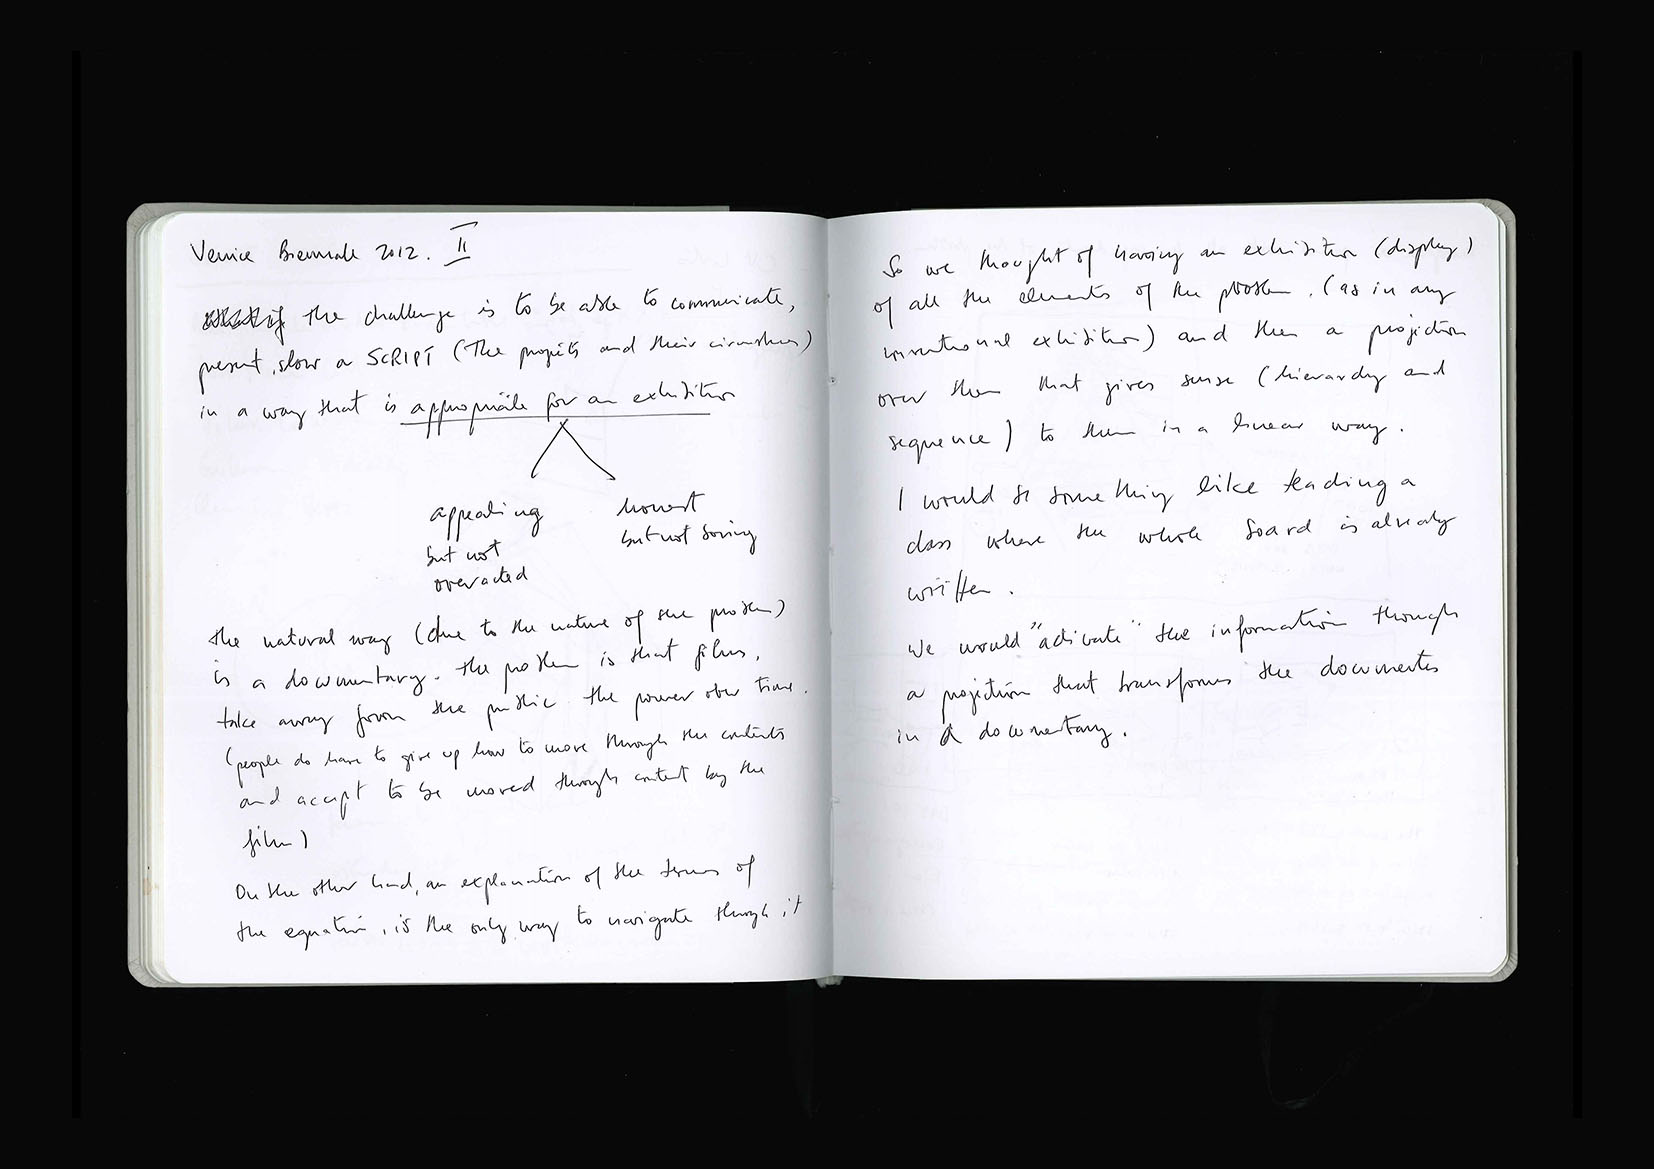 Venice Biennale 2012. II
the challenge is to be able to communicate,
present, show a SCRIPT (the projects and their circumstances)
in a way that is appropriate for an exhibition
appealing
but not
overacted
honest
but not boring
the natural way (due to the nature of the problem)
is a documentary. the problem is that films,
take away from the public the power over time.
(people do have to give up how to move through the contents
and accept to be moved through content by the
film)
On the other hand, an explanation of the terms of
the equation, is the only way to navigate through it
So we thought of having an exhibition (display)
of all the elements of the problem. (as in any
conventional exhibition) and then a projection
over them that gives sense (hierarchy and
sequence) to them in a linear way.
I would be something like teading a
class where the whole board is already
written.
We would "activate" the information through
a projection that transforms the documents
in a documentary.